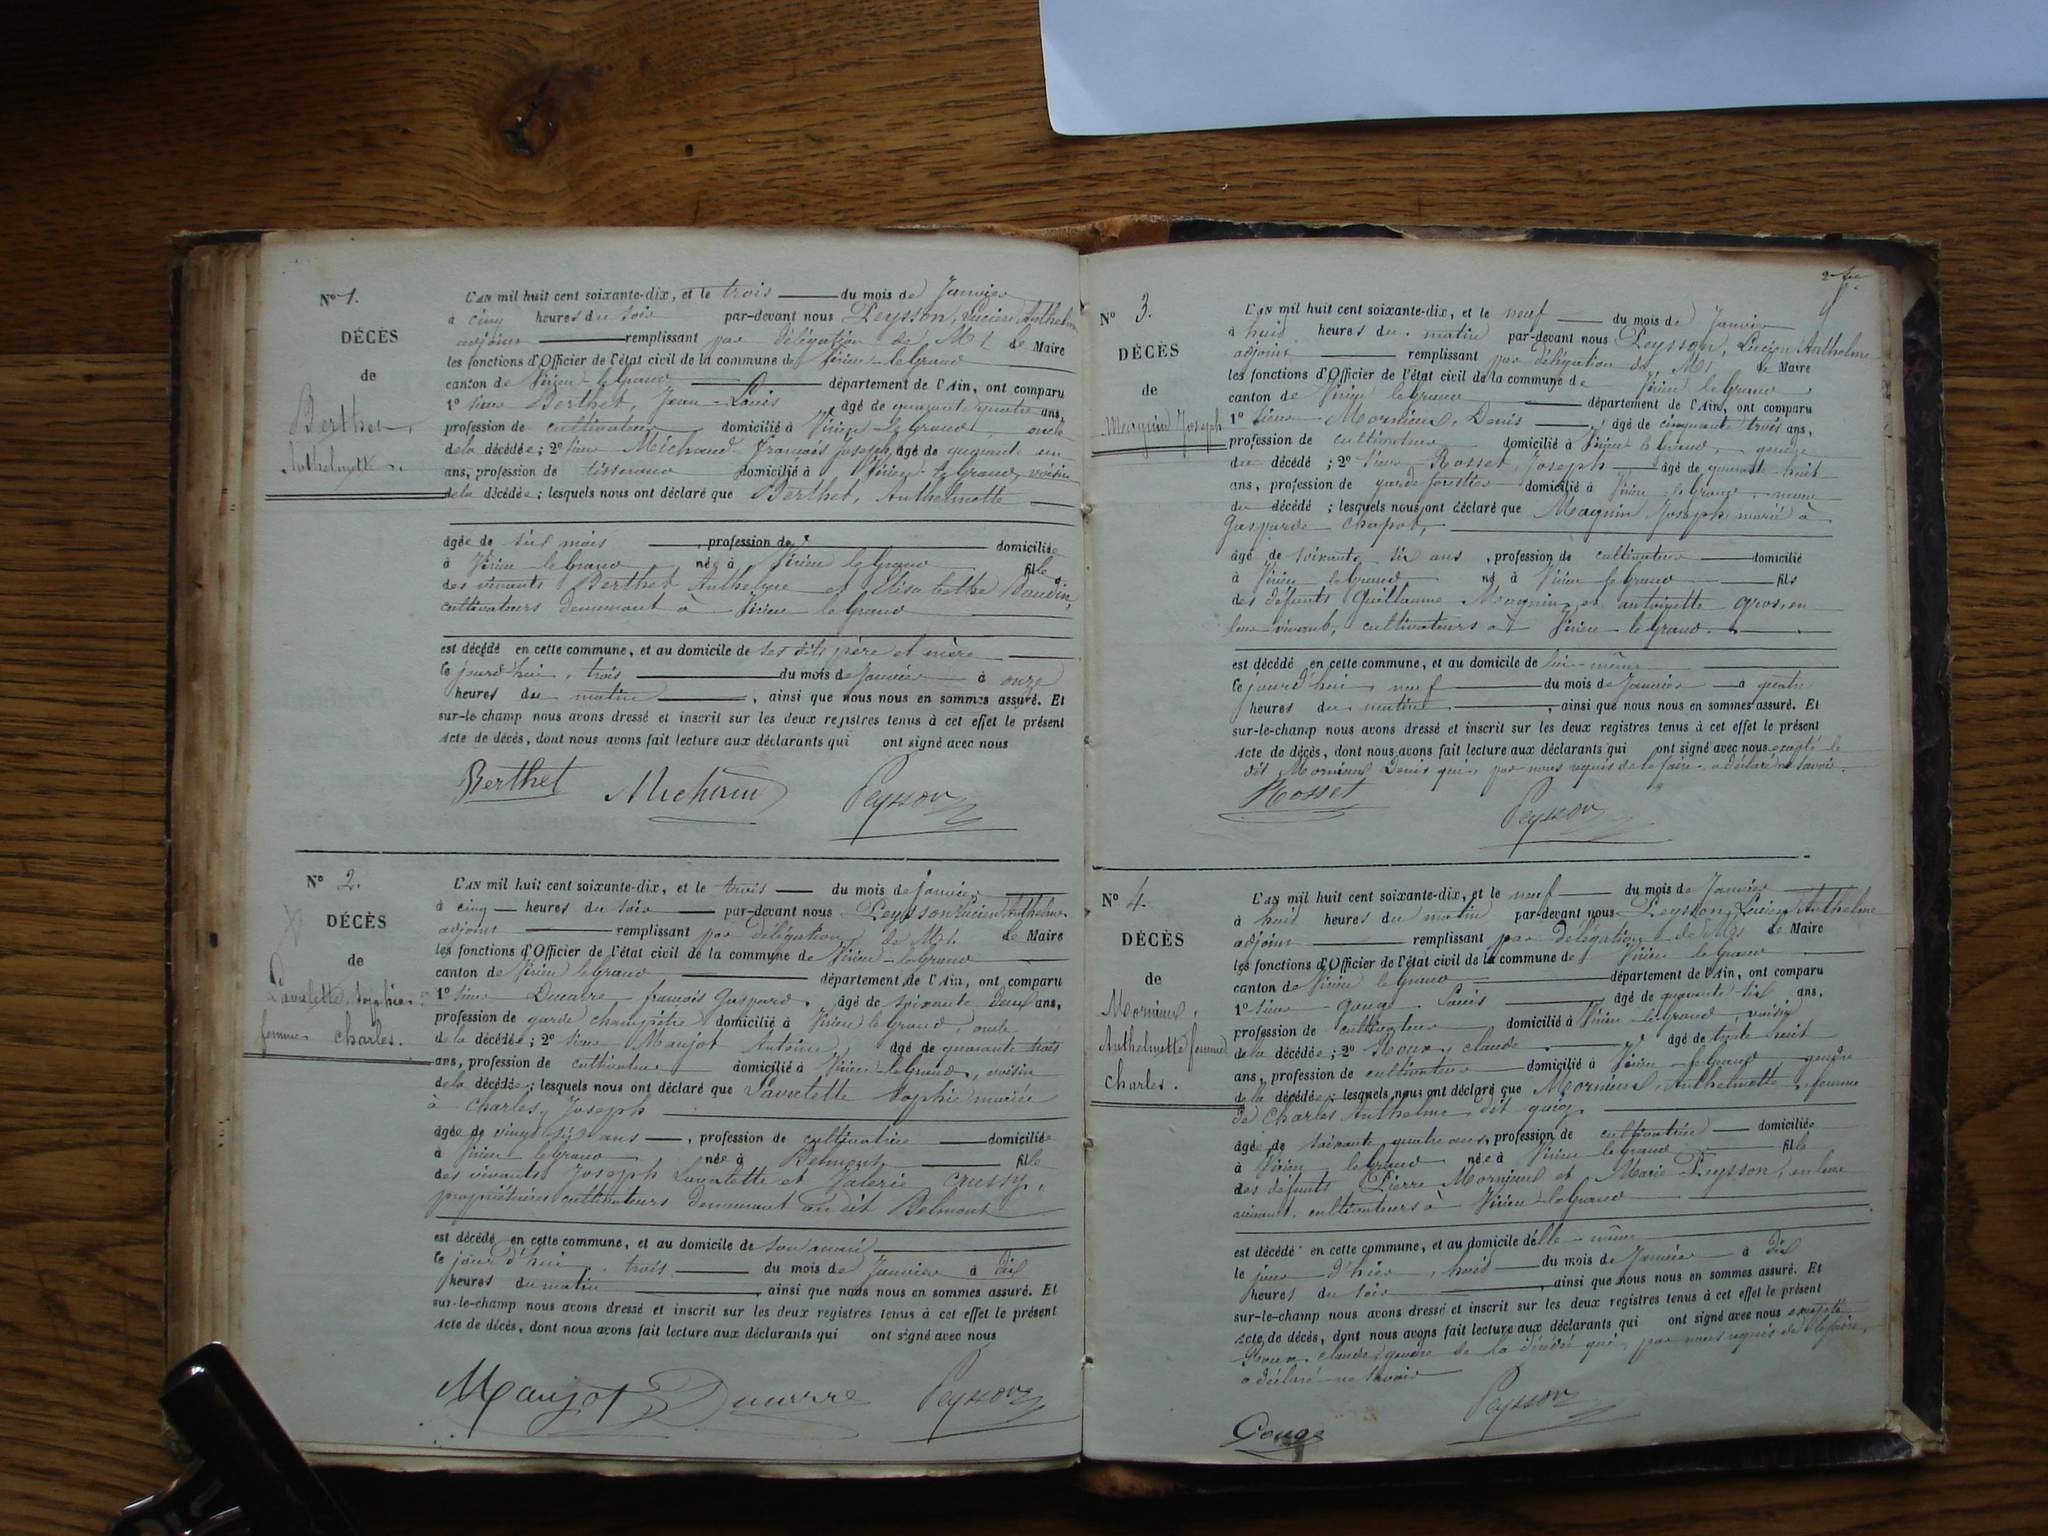 N° 1.
DÉCÈS
de
Berthet
Anthelmette.
L'AN mil huit cent soixante-dix, et le trois du mois de Janvier
à cinq heures du soir par-devant nous Peysson, Lucien Anthelme
adjoint remplissant par délégation de Mr le Maire
les fonctions d'Officier de l'état civil de la commune de Virieu-le-Grand
canton de Virieu-le-Grand département de l'Ain, ont comparu
1° sieur Berthet, Jean-Louis âgé de quarante quatre ans,
profession de cultivateur domicilié à Virieu le Grand, oncle
de la décédée; 2° sieur Michaud François Joseph, âgé de quarante un
ans, profession de tisserand domicilié à Virieu le Grand, voisin
de la décédée; lesquels nous ont déclaré que Berthet, Anthelmette
âgée de six mois, profession de domiciliée
à Virieu-le-Grand née à Virieu le Grand fille
des vivants Berthet Anthelme et Elisabethe Baudin,
cultivateurs demeurant à Virieu le Grand
est décédé en cette commune, et au domicile de ses dits père et mère
le jourd'hui, trois du mois de Janvier à onze
heures du matin, ainsi que nous nous en sommes assuré. Et
sur-le-champ nous avons dressé et inscrit sur les deux registres tenus à cet effet le présent
acte de décès, dont nous avons fait lecture aux déclarants qui ont signé avec nous
Berthet Michaud Peysson
N° 2.
DÉCÈS
de
Lavulette, Sophie
femme Charles.
L'AN mil huit cent soixante-dix, et le trois du mois de Janvier
à cinq heures du soir par-devant nous Peysson Lucien Anthelme
adjoint remplissant par délégation de Mr. le Maire
les fonctions d'Officier de l'état civil de la commune de Virieu-le-Grand
canton de Virieu le Grand département de l'Ain, ont comparu
1° sieur Ducarre françois Gaspard. âgé de soixante deux ans,
profession de garde champêtre domicilié à Virieu le Grand, oncle
de la décédée; 2° sieur Maujot Antoine âgé de quarante trois
ans, profession de cultivateur domicilié à Virieu-le-Grand, voisin
de la décédée; lesquels nous ont déclaré que Lavulette Sophie mariée
à Charles, Joseph
âgée de vingt six ans, profession de cultivatrice domiciliée
à Virieu le Grand née à Belmont fille
des vivants Joseph Lavulette et Valerie Crussy,
propriétaires cultivateurs demeurant au dit Belmont
est décédé en cette commune, et au domicile de son mari
le jour d'hui, trois du mois de Janvier à dix
heures du matin ainsi que nous nous en sommes assuré. Et
sur-le-champ nous avons dressé et inscrit sur les deux registres tenus à cet effet le présent
acte de décès, dont nous avons fait lecture aux déclarants qui ont signé avec nous
Maujot Ducarre Peysson
N° 3.
DÉCÈS
de
Magnin Joseph
L'AN mil huit cent soixante-dix, et le neuf du mois de Janvier
à huit heures du matin par-devant nous Peysson, Lucien Anthelme
adjoint remplissant par délégation de Mr le Maire
les fonctions d'Officier de l'état civil de la commune de Virieu le Grand
canton de Virieu le Grand département de l'Ain, ont comparu
1° sieur Mornieux, Denis âgé de cinquante trois ans,
profession de cultivateur domicilié à Virieu le Grand, gendre
du décédé; 2° sieur Rosset Joseph âgé de quarante huit
ans, profession de garde forestier domicilié à Virieu-le-Grand, neveu
du décédé; lesquels nous ont déclaré que Magnin Joseph, marié à
Gasparde Chapot,
âgé de soixante six ans, profession de cultivateur domicilié
à Virieu le Grand né à Virieu le Grand fils
des défunts Guillaume Magnin et antoinette Gros, en
leur vivant, cultivateurs à Virieu-le-Grand.
est décédé en cette commune, et au domicile de lui-même
le jourd'hui, neuf du mois de Janvier à quatre
heures du matin, ainsi que nous nous en sommes assuré. Et
sur-le-champ nous avons dressé et inscrit sur les deux registres tenus à cet effet le présent
acte de décès, dont nous avons fait lecture aux déclarants qui ont signé avec nous excepté le
dit Mornieux Denis qui, par nous requis de le faire, a déclaré ne savoir.
Rosset Peysson
N° 4.
DÉCÈS
de
Mornieux,
Anthelmette femme
Charles.
L'AN mil huit cent soixante-dix, et le neuf du mois de Janvier
à huit heures du matin par-devant nous Peysson, Lucien Anthelme
adjoint remplissant par délégation de Mr le Maire
les fonctions d'Officier de l'état civil de la commune de Virieu le Grand
canton de Virieu le Grand département de l'Ain, ont comparu
1° sieur Gouge Louis âgé de quarante six ans,
profession de cultivateur domicilié à Virieu le Grand, voisin
de la décédée; 2° Roux, claude âgé de trente huit
ans, profession de cultivateur domicilié à Virieu le Grand, gendre
de la décédée; lesquels nous ont déclaré que Mornieux, Anthelmette, femme
de Charles Anthelme dit
âgée de soixante quatre ans, profession de cultivatrice domiciliée
à Virieu le Grand née à Virieu le Grand fille
des défunts Pierre Mornieux et Marie Peysson, en leur
vivant cultivateurs à Virieu-le-Grand
est décédé en cette commune, et au domicile d'elle-même
le jour d'hier, huit du mois de Janvier à dix
heures du soir, ainsi que nous nous en sommes assuré. Et
sur-le-champ nous avons dressé et inscrit sur les deux registres tenus à cet effet le présent
acte de décès, dont nous avons fait lecture aux déclarants qui ont signé avec nous excepté
Roux claude, gendre de la décédée qui, par nous requis de le faire,
a déclaré ne savoir
Gouge Peysson